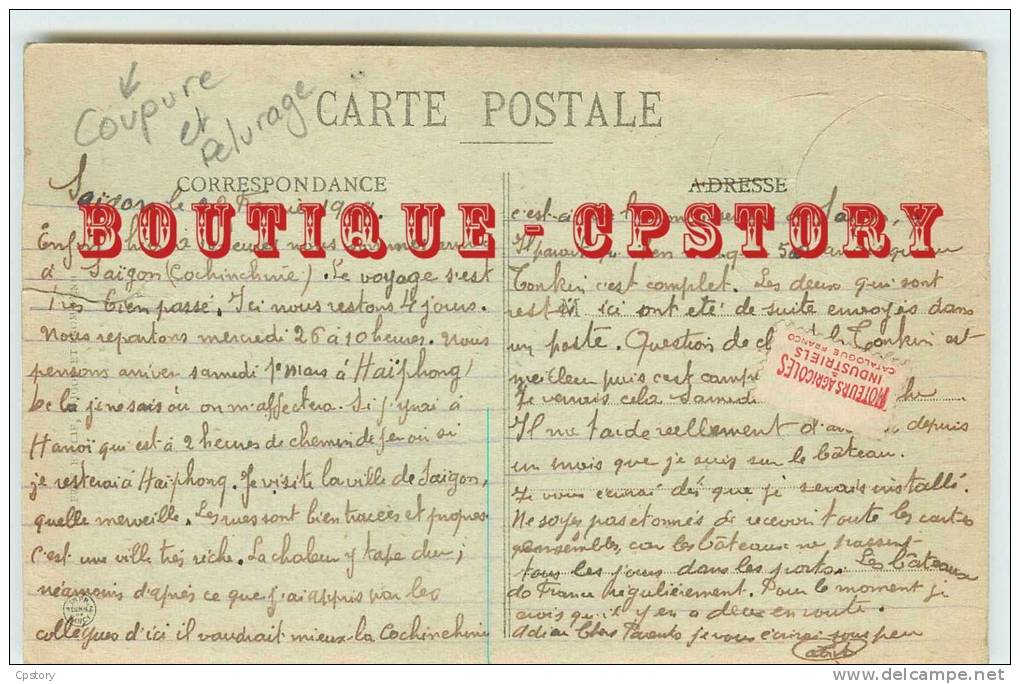 Coupure
et
pelurage
CARTE POSTALE
CORRESPONDANCE
Saïgon le
BOUTIQUE - CPSTORY
Enfin nous sommes
à Saïgon (Cochinchine). Le voyage s'est
très bien passé. Ici nous restons 4 jours.
Nous repartons mercredi 26 à 10 heures. Nous
pensons arriver samedi 1er mars à Haïphong
de là je ne sais où on m'affectera. Si j'irai à
Hanoï qui est à 2 heures de chemin de fer ou si
je resterai à Haïphong. Je visite la ville de Saïgon,
quelle merveille. Les rues sont bien tracées et propres
c'est une ville très riche. La chaleur y tape dur ;
néamoins d'après ce que j'ai appris par les
collègues d'ici il vaudrait mieux la Cochinchine
ADRESSE
c'est-à
Il parait
Tonkin c'est complet. Les deux qui sont
ici ont été de suite envoyés dans
un poste. Question de le Tonkin est
meilleur puis c'est
Je verrais cela samedi
MOTEURS AGRICOLES
&
INDUSTRIELS
CATALOGUE FRANCO
Il me tarde réellement depuis
un mois que je suis sur le bâteau.
Je vous écrirai dès que je serais installé.
Ne soyez pas étonnés de recevoir toute les cartes
ensembles, car les bâteaux ne passent
tous les jours dans les ports. Les bâteaux
de France régulièrement. Pour le moment je
crois qu'il y en a deux en route.
Adieu Chers Parents je vous écrirai sous peu
Cpstory
www.delcampe.net